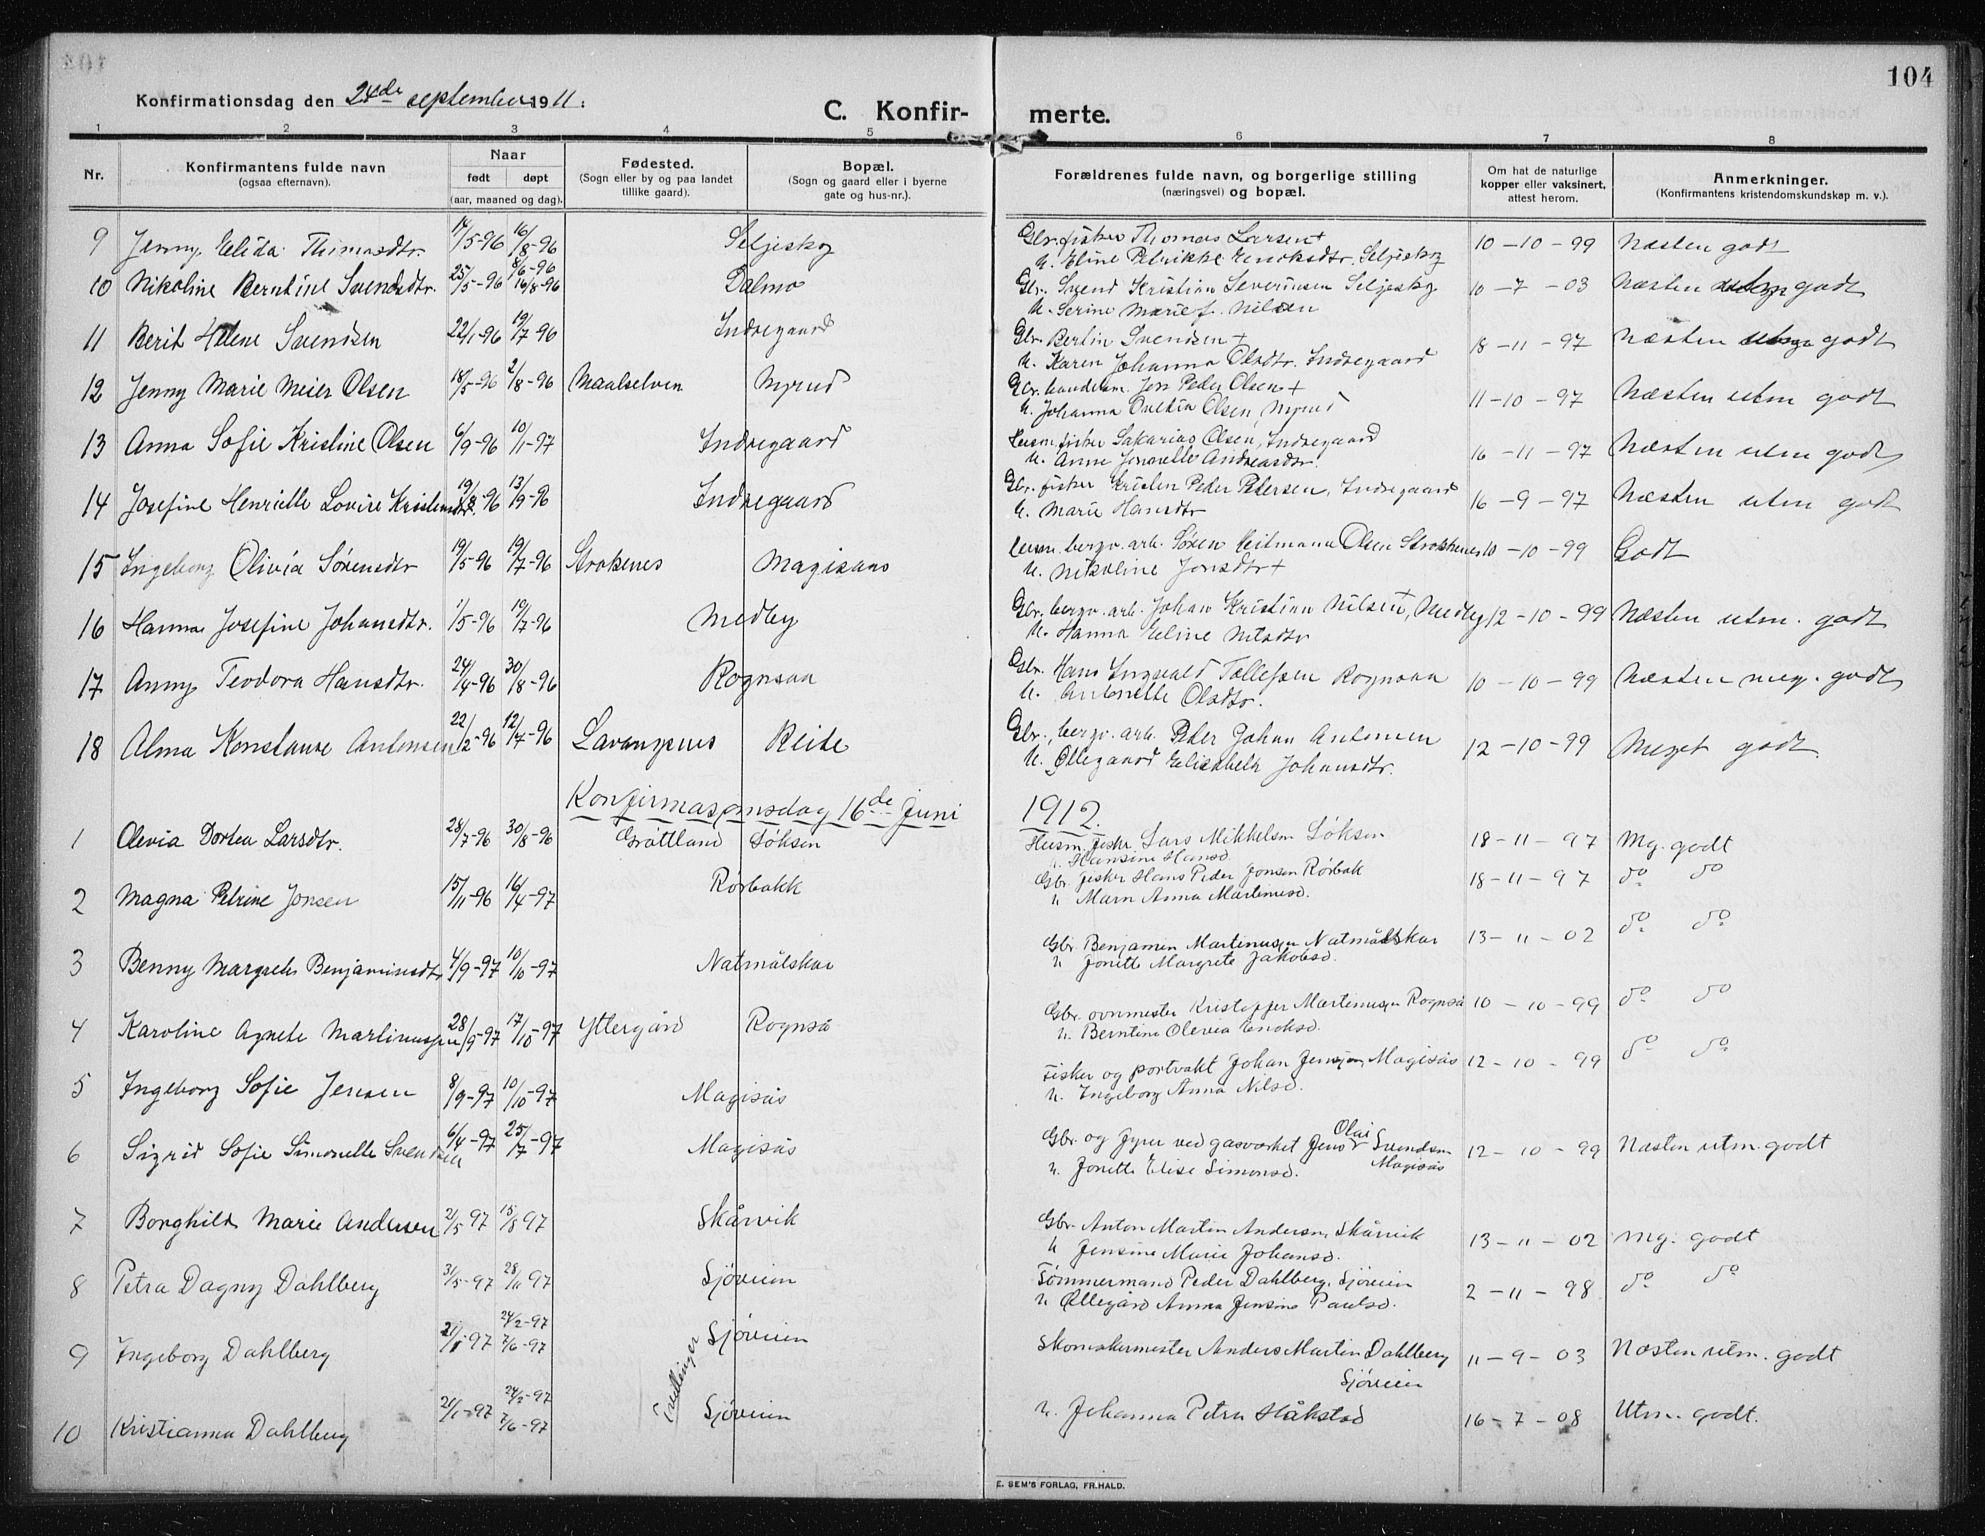 104
Konfirmationsdag den 24de september 1911.
C. Konfir- merte.
1 2 3 4 5 6 7 8
Nr.
Konfirmantens fulde navn
(ogsaa efternavn).
Naar
født døpt
(aar, maaned og dag).
Fødested.
(Sogn eller by og paa landet
tillike gaard).
Bopæl.
(Sogn og gaard eller i byerne
gate og hus-nr.).
Forældrenes fulde navn, og borgerlige stilling
(næringsvei) og bopæl.
Om hat de naturlige
kopper eller vaksinert,
attest herom.
Anmerkninger.
(Konfirmantens kristendomskundskap m. v.).
9 Jenny Elida Thomasdtr. 17/5-96 16/8-96 Seljeskog Gbr. fisker Thomas Larsen + 10-10-99 Næsten godt
u. Eline Petrikke Enoksdtr. Seljeskog
10 Nikoline Berntine Svendsdtr. 25/5-96 8/6-96 16/8-96 Dalmo Gbr. Svend Kristian Severinsen Seljeskog 10-7-03 Næsten godt
u. Serine Marie f. Nilsen
11 Berit Helene Svendsen 22/1-96 19/7-96 Indregaard Gbr. Bertin Svendsen + 18-11-97 Næsten godt
u. Karen Johanna Olsdtr. Indregaard
12 Jenny Marie Meier Olsen 18/5-96 2/8-96 Maalselven Myrud Gbr. handelsm. Jon Peder Olsen + 11-10-97 Næsten utm godt
u. Johanna Olsen, Myrud
13 Anna Sofie Kristine Olsen 6/9-96 10/1-97 Indregaard Husm. fisker Sakarias Olsen, Indregaard 16-11-97 Næsten utm godt
u. Anne Jonette Andreasdtr.
14 Josefine Henriette Lovise Kristensdtr. 19/8-96 13/9-96 Indregaard Gbr. fisker Kristen Peder Petersen, Indregaard 16-9-97 Næsten utm godt
u. Marie Hansdtr
15 Ingeborg Olivia Sørensdtr 19/5-96 19/7-96 Straksnes Magisaas Husm. bergv. arb. Søren Heitmann Olsen Straksnes 10-10-99 Godt
u. Nikoline Jonsdtr +
16 Hanna Josefine Johansdtr. 1/5-96 19/7-96 Medby Gbr. bergv. arb. Johan Kristian Nilsen +, Medby 12-10-99 Næsten utm. godt
u. Hanna Eline Nilsdtr
17 Anny Teodora Hansdtr. 24/4-96 30/8-96 Rognsaa Gbr. Hans Ingvald Tollefsen Rognsaa 10-10-99 Næsten meg. godt
u. Antonette Olsdtr.
18 Alma Konstanse Antonsen 22/2-96 12/4-96 Lavangsnes Reite Gbr., bergv. arb. Peder Johan Antonsen 12-10-99 Meget godt
u. Ollegaard Elisabeth Johansdtr.
Konfirmasjonsdag 16de Juni 1912.
1 Olevia Dortea Larsdtr. 28/7-96 30/8-96 Grøttland Løksen Husm. fisker Lars Mikkelsen Løksen 18-11-97 Mg. godt
u. Hansine Hansd.
2 Magna Petrine Jonsen 15/11-96 16/4-97 Rørbakk Gbr. fisker Hans Peder Jonsen Rørbak 18-11-97 do do
u. Maren Anna Martinusd.
3 Benny Margrete Benjaminsdtr 4/9-97 10/10-97 Natmålskar Gbr. Benjamin Martinussen Natmålskar 13-11-02 do do
u. Jonette Margrete Jakobsd.
4 Karoline Agnete Martinussen 28/9-97 17/10-97 Yttergård Rognså Gbr. ovnmester Kristoffer Martinussen Rognså 10-10-99 do do
u. Berntine Olevia Enoksd.
5 Ingeborg Sofie Jensen 8/9-97 10/10-97 Magisås Fisker og portvakt Johan Jensen, Magisås 12-10-99 do do
u. Ingeborg Anna Nilsd.
6 Sigrid Sofie Simonette Svendsen 6/4-97 25/7-97 Magisås Gbr. og fyrer ved gasverket Jens Olai Svendsen Magisås 12-10-99 Næsten utm. godt
u. Jonette Elise Simonsd.
7 Borghild Marie Andersen 2/5 97 15/8 97 Skårvik Gbr. Anton Martin Andersen, Skårvik 13-11-02 Mg. godt
u. Jensine Marie Johansd.
8 Petra Dagny Dahlberg 31/5-97 28/11 97 Sjøveien Tømmermand Peder Dahlberg, Sjøveien 2-11-98 do do
u. Ollegård Anna Jensine Paulsd.
9 Ingeborg Dahlberg 21/1-97 24/2-97 7/6-97 Sjøveien Skomakermester Anders Martin Dahlberg 11-9-03 Næsten utm. godt
Sjøveien
Tvillinger
10 Kristianna Dahlberg 21/1-97 24/2-97 7/6-97 Sjøveien u. Johanna Petra Håkstad 16-7-08 Utm. godt.
E. SEM'S FORLAG, FR.HALD.